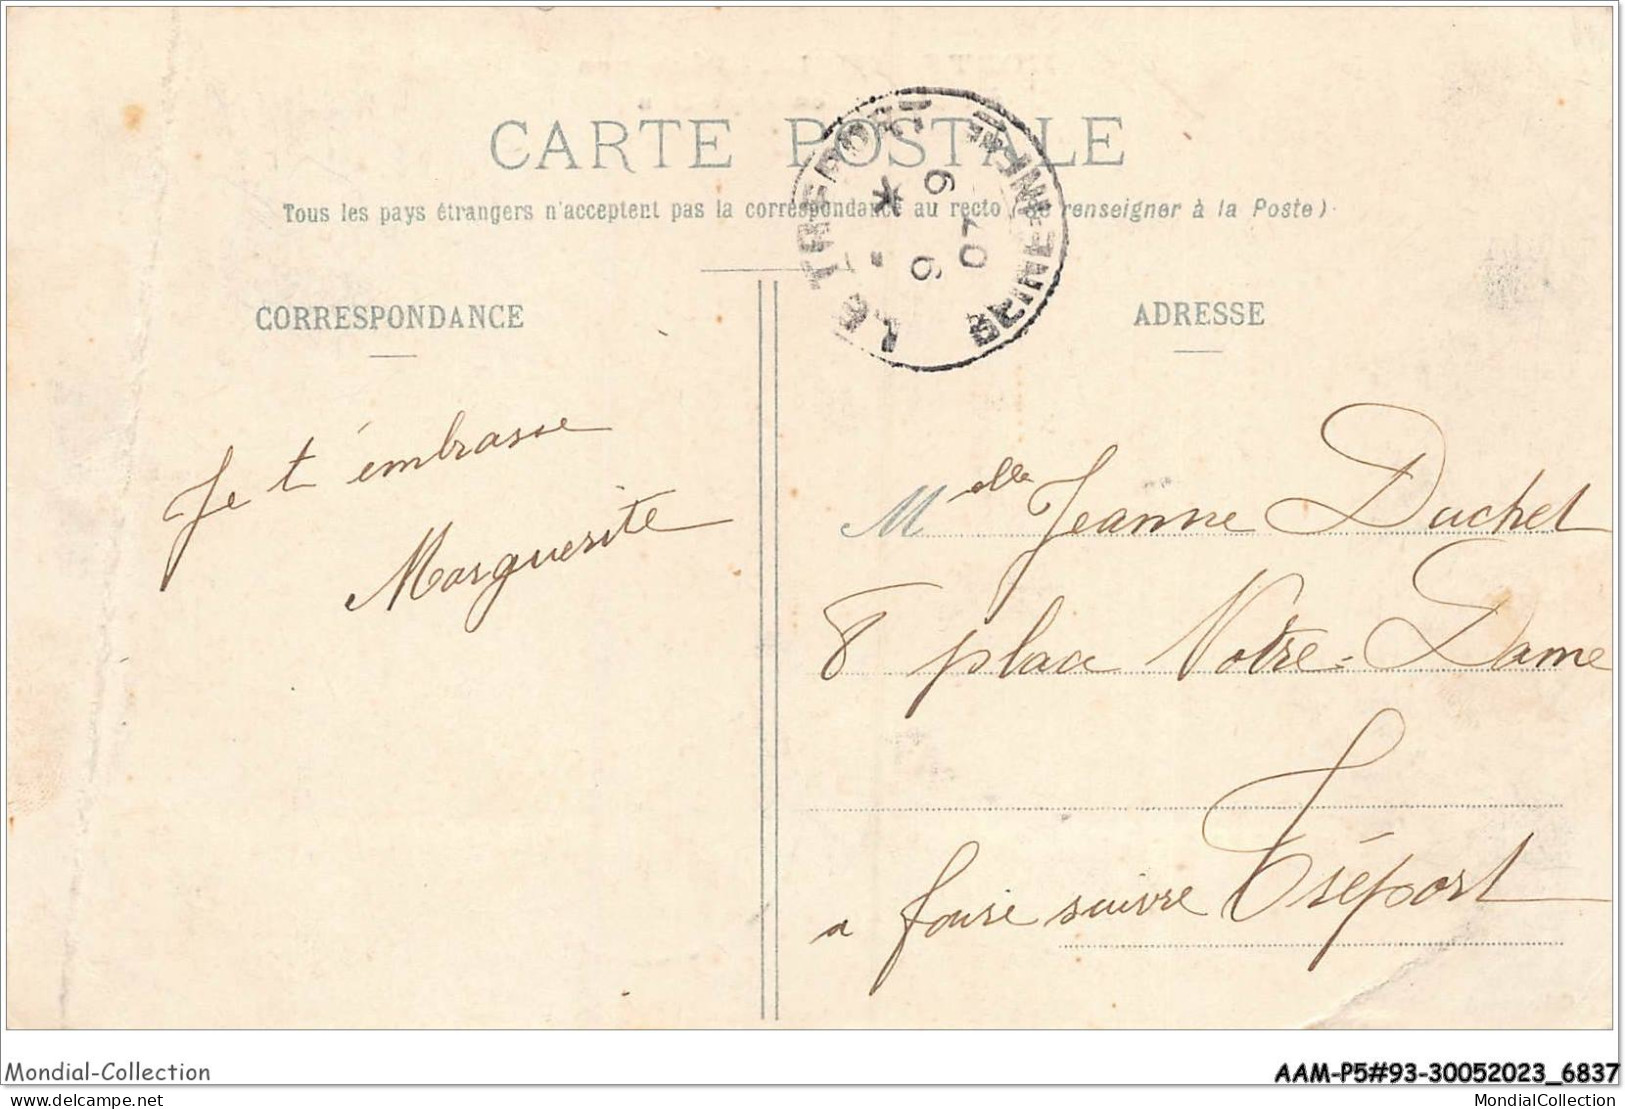 CARTE POSTALE
Tous les pays étrangers n'acceptent pas la correspondance au recto (se renseigner à la Poste)
LE TREPORT
SEINE INFRE
* 9 - 9 07
CORRESPONDANCE
ADRESSE
Je t'embrasse
Marguerite
Melle Jeanne Duchet
8 place Notre-Dame
a faire suivre Tréport
Mondial-Collection
AAM-P5#93-30052023_6837
delcampe.net
MondialCollection